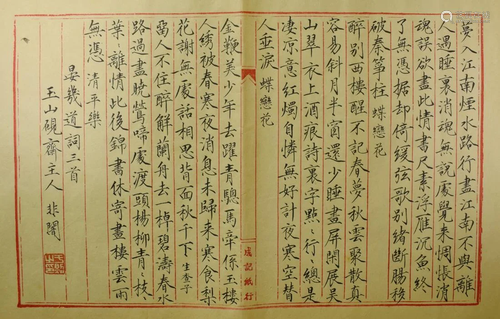 夢入江南煙水路行盡江南不與離
人遇睡裏消魂無說處覺來惆悵消
魂誤欲盡此情書尺素浮雁沉魚終
了無憑據却倚緩弦歌別緒斷腸移
破秦箏柱 蝶戀花
醉別西樓醒不記春夢秋雲聚散真
容易斜月半窗還少睡畫屏閒展吳
山翠衣上酒痕詩裏字點:行:總是
淒涼意紅燭自憐無好計夜寒空替
人垂淚 蝶戀花
成記紙行
金鞭美少年去躍青驄馬牽係玉樓
人綉被春寒夜消息未歸來寒食梨
花謝無處話相思背面秋千下 生查子
留人不住醉解蘭舟去棹碧濤春水
路過盡曉鶯啼處渡頭楊柳青:枝:
葉:離情此後錦書休寄畫樓雲雨
無憑 清平樂
晏幾道詞三首
玉山硯齋主人